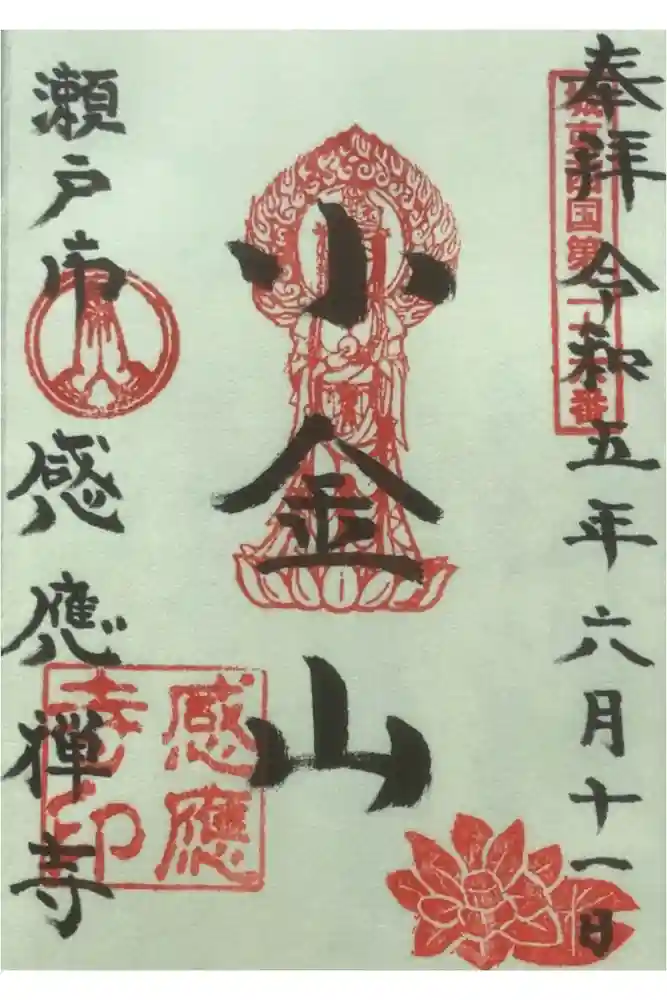 奉拝 令和五年六月十一日
城東西国第
番
小金山
瀬戸市 感應禅寺
感應
寺印